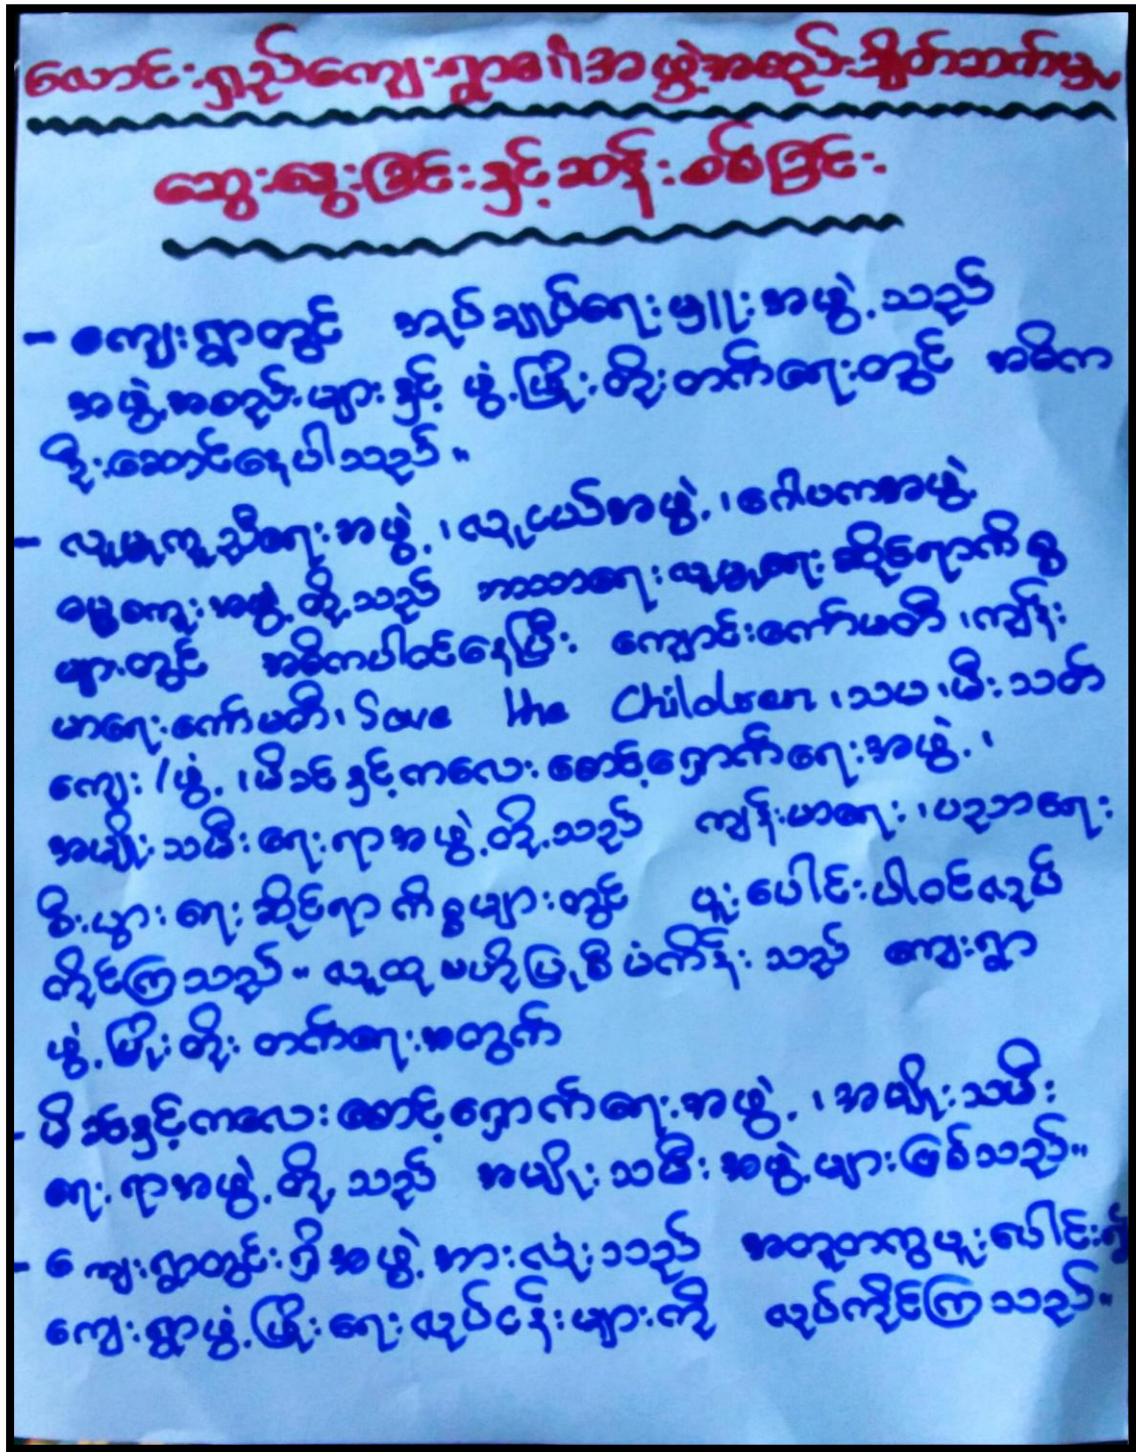 လောင်းရှည်ကျေးရွာ၏အဖွဲ့အစည်းချိတ်ဆက်မှု
ဆွေးနွေးခြင်းနှင့်ဆန်းစစ်ခြင်း
- ကျေးရွာတွင် အုပ်ချုပ်ရေးမှူးအဖွဲ့သည်
အဖွဲ့အစည်းများနှင့် ဖွံ့ဖြိုးတိုးတက်ရေးတွင် အဓိက
ဦးဆောင်နေပါသည်။
- လူမှုကူညီရေးအဖွဲ့၊ လူငယ်အဖွဲ့၊ ဂေါပကအဖွဲ့
ဓမ္မကျေးအဖွဲ့တို့သည် ဘာသာရေးလူမှုရေးဆိုင်ရာကိစ္စ
များတွင် အဓိကပါဝင်နေပြီး ကျောင်းကော်မတီ၊ ကျန်း
မာရေးကော်မတီ၊ Save the Children ၊ သမ၊ မီးသတ်
ကျေး/ဖွံ့၊ မိခင်နှင့်ကလေးစောင့်ရှောက်ရေးအဖွဲ့၊
အမျိုးသမီးရေးရာအဖွဲ့တို့သည် ကျန်းမာရေး၊ ပညာရေး
စီးပွားရေးဆိုင်ရာကိစ္စများတွင် ပူးပေါင်းပါဝင်လုပ်
ကိုင်ကြသည်။ လူထုဗဟိုပြုစီမံကိန်းသည် ကျေးရွာ
ဖွံ့ဖြိုးတိုးတက်ရေးအတွက်
- မိခင်နှင့်ကလေးစောင့်ရှောက်ရေးအဖွဲ့၊ အမျိုးသမီး
ရေးရာအဖွဲ့တို့သည် အမျိုးသမီးအဖွဲ့များဖြစ်သည်။
- ကျေးရွာတွင်းရှိအဖွဲ့အားလုံးသည် အတူတကွပူးပေါင်း၍
ကျေးရွာဖွံ့ဖြိုးရေးလုပ်ငန်းများကို လုပ်ကိုင်ကြသည်။